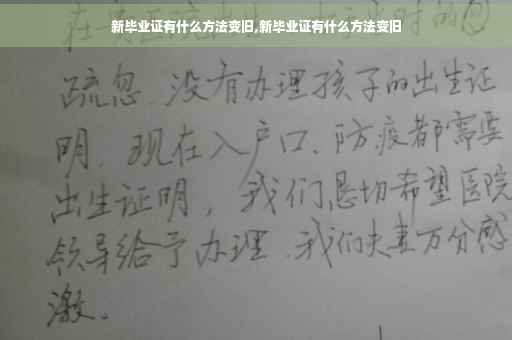 新毕业证有什么方法变旧,新毕业证有什么方法变旧
疏忽、没有办理孩子的出生证
明、现在入户口、防疫都需要
出生证明，我们恳切希望医院
领导给予办理、我们夫妻万分感
激。